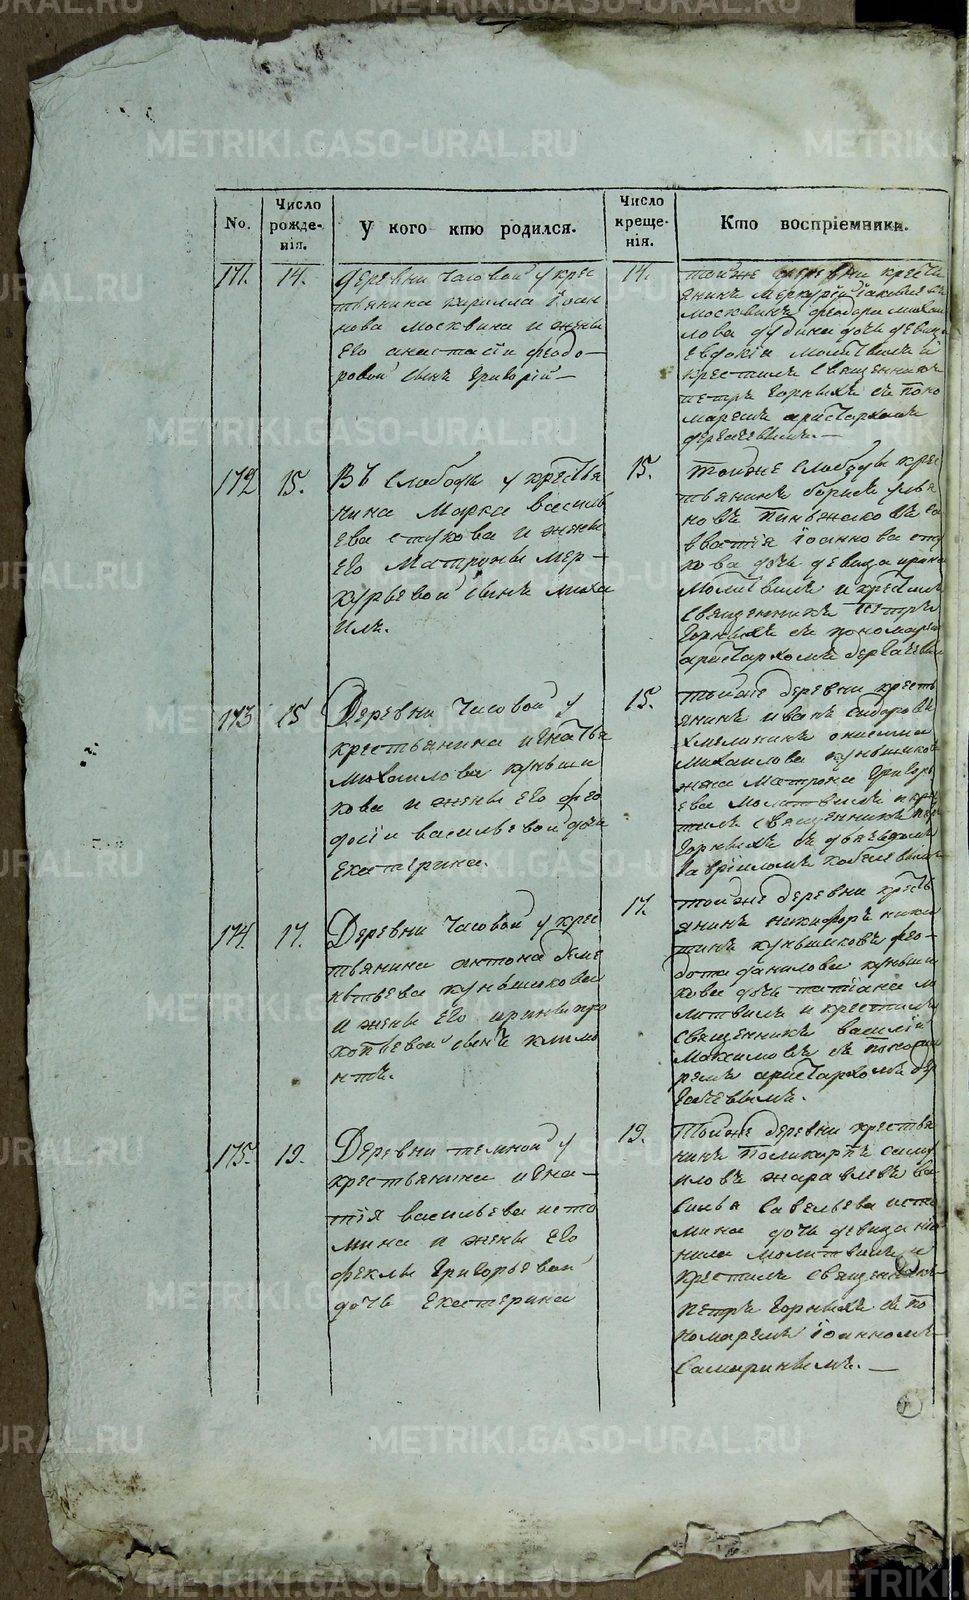 METRIKI.GASO-URAL.RU
No.
Число рожденія.
У кого кто родился.
Число крещенія.
Кто воспріемники.
171.
14.
деревни Часовой у крес
тьянина кирилла Іоан
нова москвина и жены
его анастасіи феодо-
ровой сынъ григорій —
14.
тойже деревни кресть
янинъ меркурій
москвинъ феодора михаи
лова дочь девица
евдокіа молитвилъ и
крестилъ священникъ
петръ горныхъ съ поно
маремъ аристархомъ
172
15.
Въ слободы у крестья
нина марка василь
ева стукова и жены
его матроны мер-
курьевой сынъ миха
илъ.
15.
тойже слободы крес
тьянинъ борисъ улья
новъ
іоаннова сту
кова дочь девица ирина
молитвилъ и крестилъ
священникъ петръ
горныхъ съ пономаремъ
аристархомъ
173
15
Деревни Часовой у
крестьянина игнатья
михаилова куньщи
кова и жены его фео
досіи васильевой дочь
екатерина.
15.
тойже деревни кресть
янинъ иванъ сидоровъ
михаилова куньщикова
жена матрона григорь
ева молитвилъ и крес
тилъ священникъ петръ
горныхъ съ
гавріиломъ
174.
17.
Деревни Часовой у крес
тьянина антона деме
нтьева куньщикова
и жены его ирины про
копьевой сынъ климе
нтъ.
17.
тойже деревни кресть
янинъ никифоръ ники
тинъ куньщиковъ фео-
дота данилова куньщи
кова дочь татіана мо
литвилъ и крестилъ
священникъ василій
максимовъ съ понома
ремъ аристархомъ дер
гачевымъ.
175.
19.
Деревни темной у
крестьянина игна-
тія васильева исто
мина и жены его
феклы григорьевой
дочь екатерина
19.
Тойже деревни крестья
нинъ поликарпъ саму
иловъ жаравлевъ ва
силья савельева исто
мина дочь девица не
нила молитвилъ и
крестилъ священникъ
петръ горныхъ съ по
номаремъ іоанномъ
самаринымъ. —